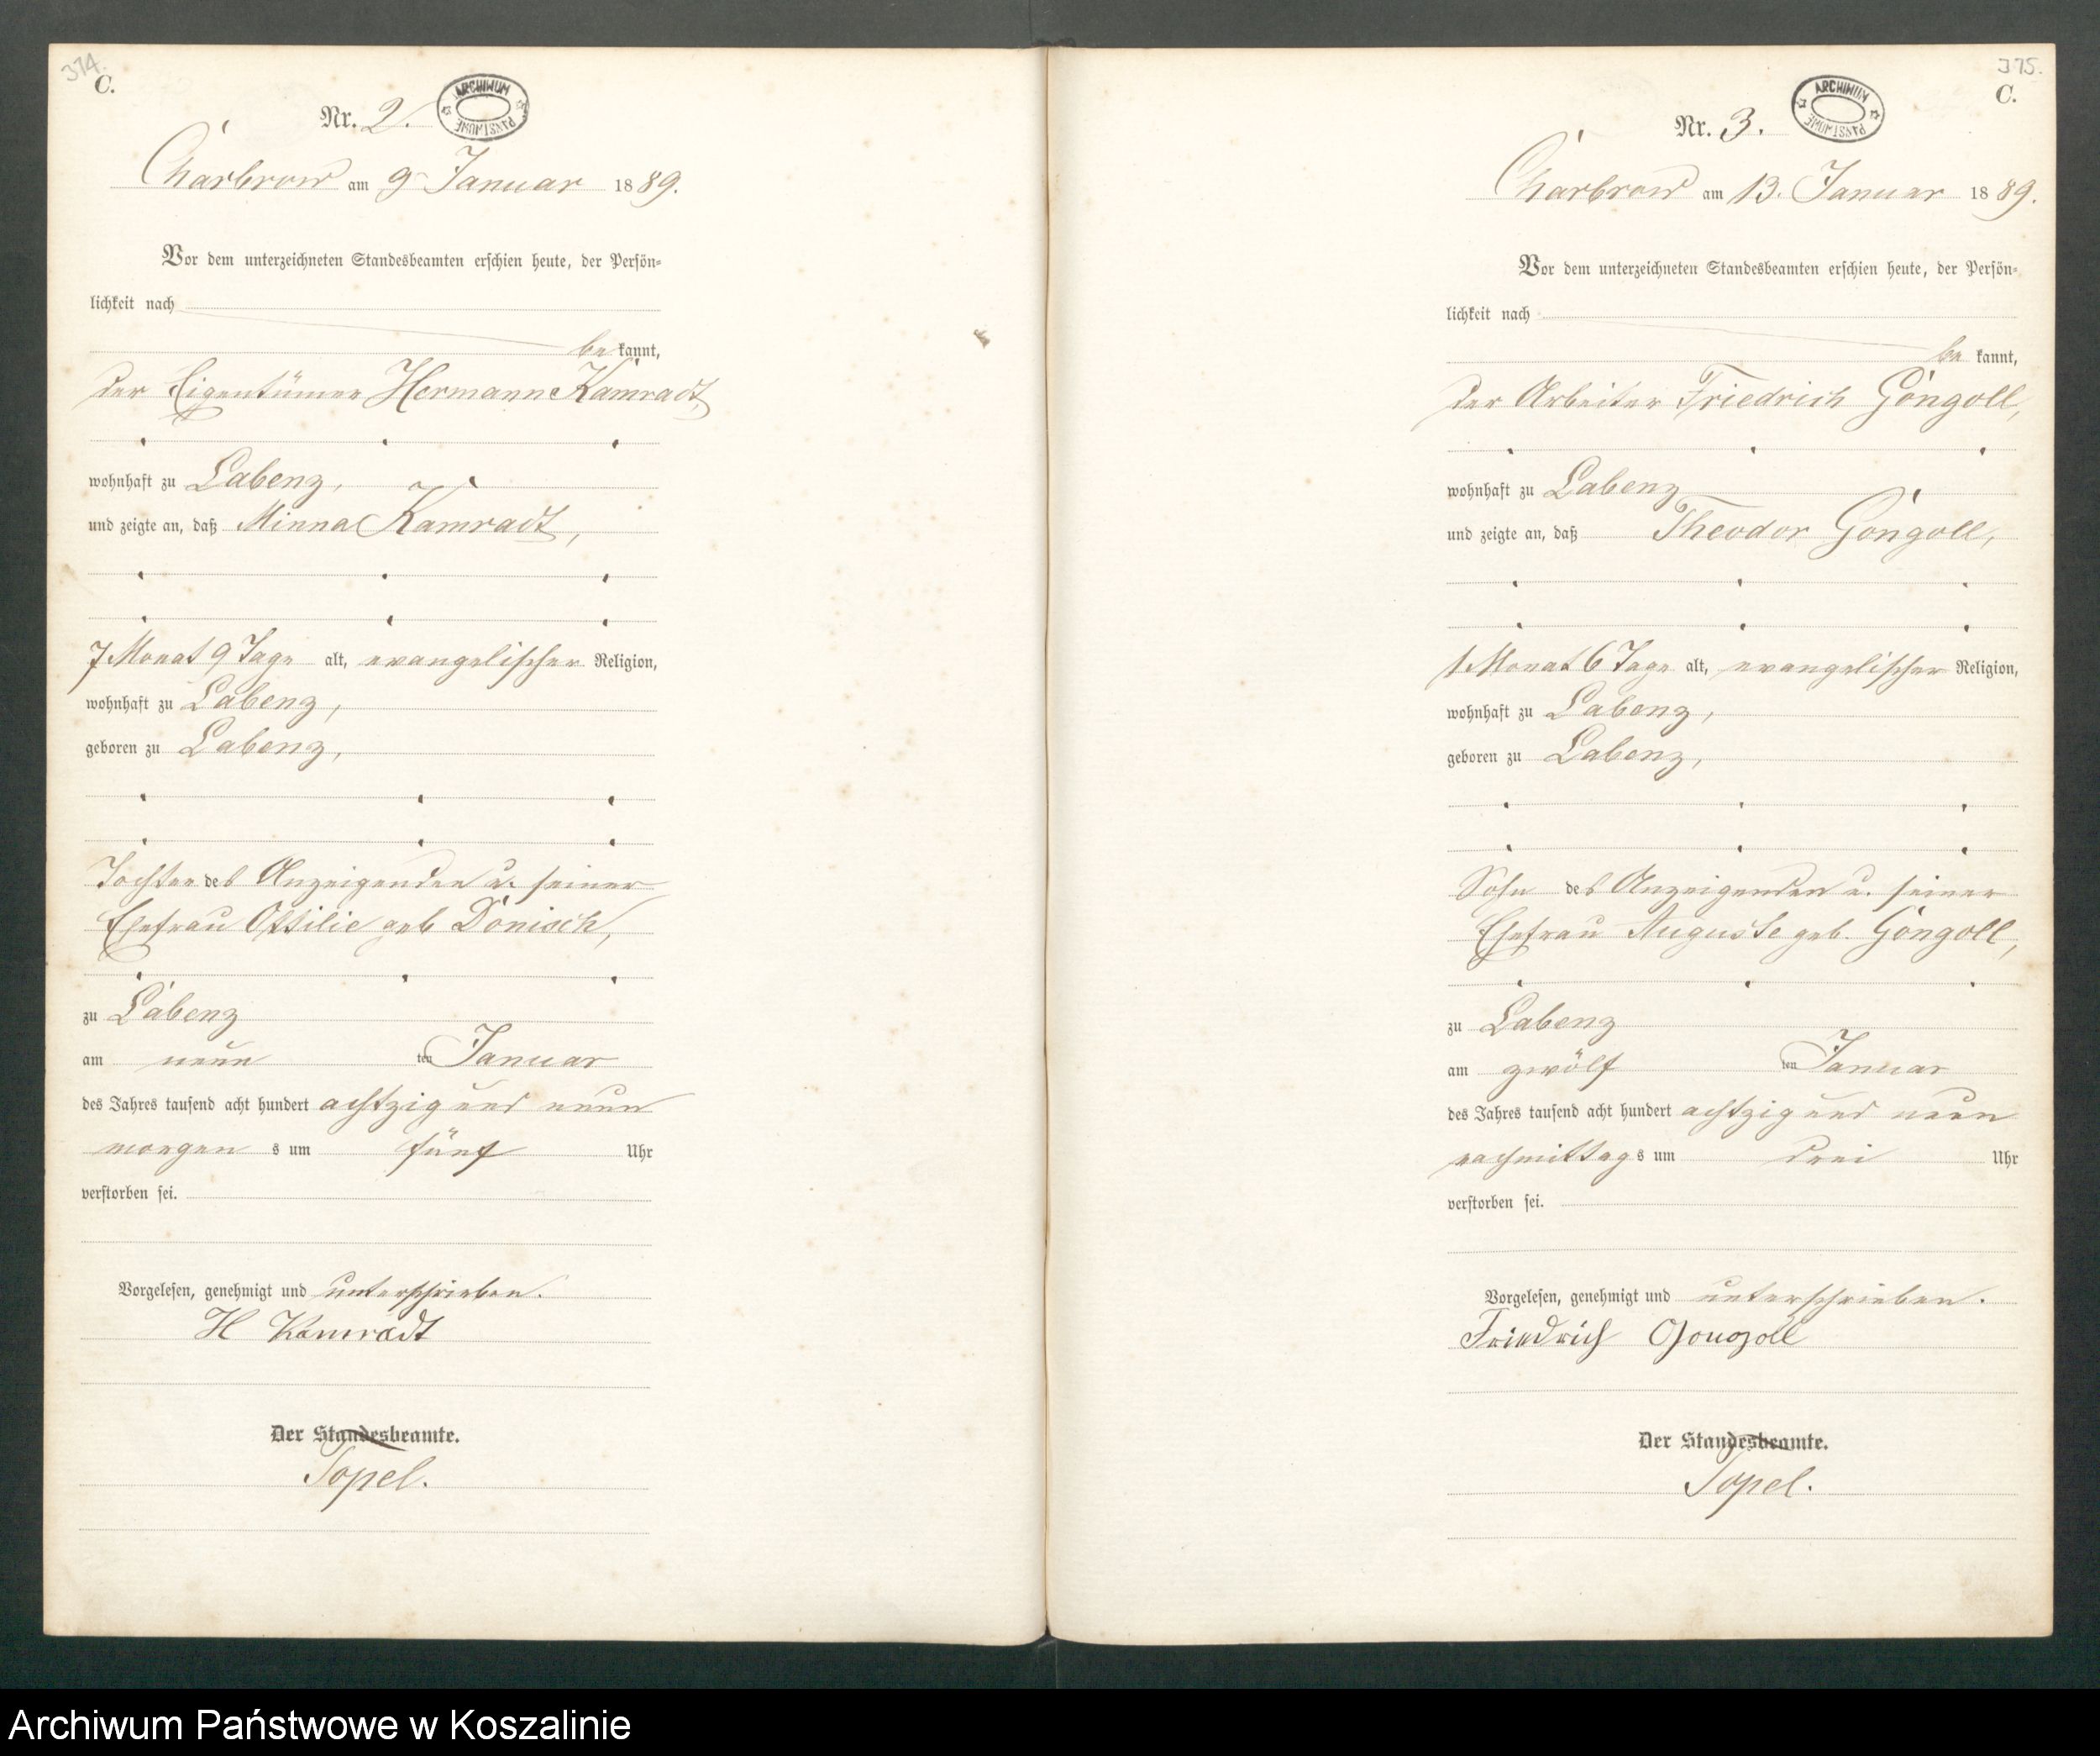 374.
C.
Nr. 2.
ARCHIWUM PAŃSTWOWE
Charbrow am 9 Januar 1889.
Vor dem unterzeichneten Standesbeamten erschien heute, der Persön-
lichkeit nach
be kannt,
der Eigentümer Hermann Kamradt,
wohnhaft zu Labenz,
und zeigte an, daß Minna Kamradt,
7 Monat 9 Tage alt, evangelischer Religion,
wohnhaft zu Labenz,
geboren zu Labenz,
Tochter des Anzeigenden u. seiner
Ehefrau Ottilie geb Dönisch,
zu Labenz
am neun ten Januar
des Jahres tausend acht hundert achtzig und neun
morgen s um fünf Uhr
verstorben sei.
Vorgelesen, genehmigt und unterschrieben.
H Kamradt
Der Standesbeamte.
Topel.
375.
C.
Nr. 3.
ARCHIWUM PAŃSTWOWE
Charbrow am 13. Januar 1889.
Vor dem unterzeichneten Standesbeamten erschien heute, der Persön-
lichkeit nach
be kannt,
der Arbeiter Friedrich Gongoll,
wohnhaft zu Labenz
und zeigte an, daß Theodor Gongoll,
1 Monat 6 Tage alt, evangelischer Religion,
wohnhaft zu Labenz,
geboren zu Labenz,
Sohn des Anzeigenden u. seiner
Ehefrau Auguste geb. Gongoll,
zu Labenz
am zwölf ten Januar
des Jahres tausend acht hundert achtzig und neun
nachmittag s um drei Uhr
verstorben sei.
Vorgelesen, genehmigt und unterschrieben.
Friedrich Gongoll
Der Standesbeamte.
Topel.
Archiwum Państwowe w Koszalinie